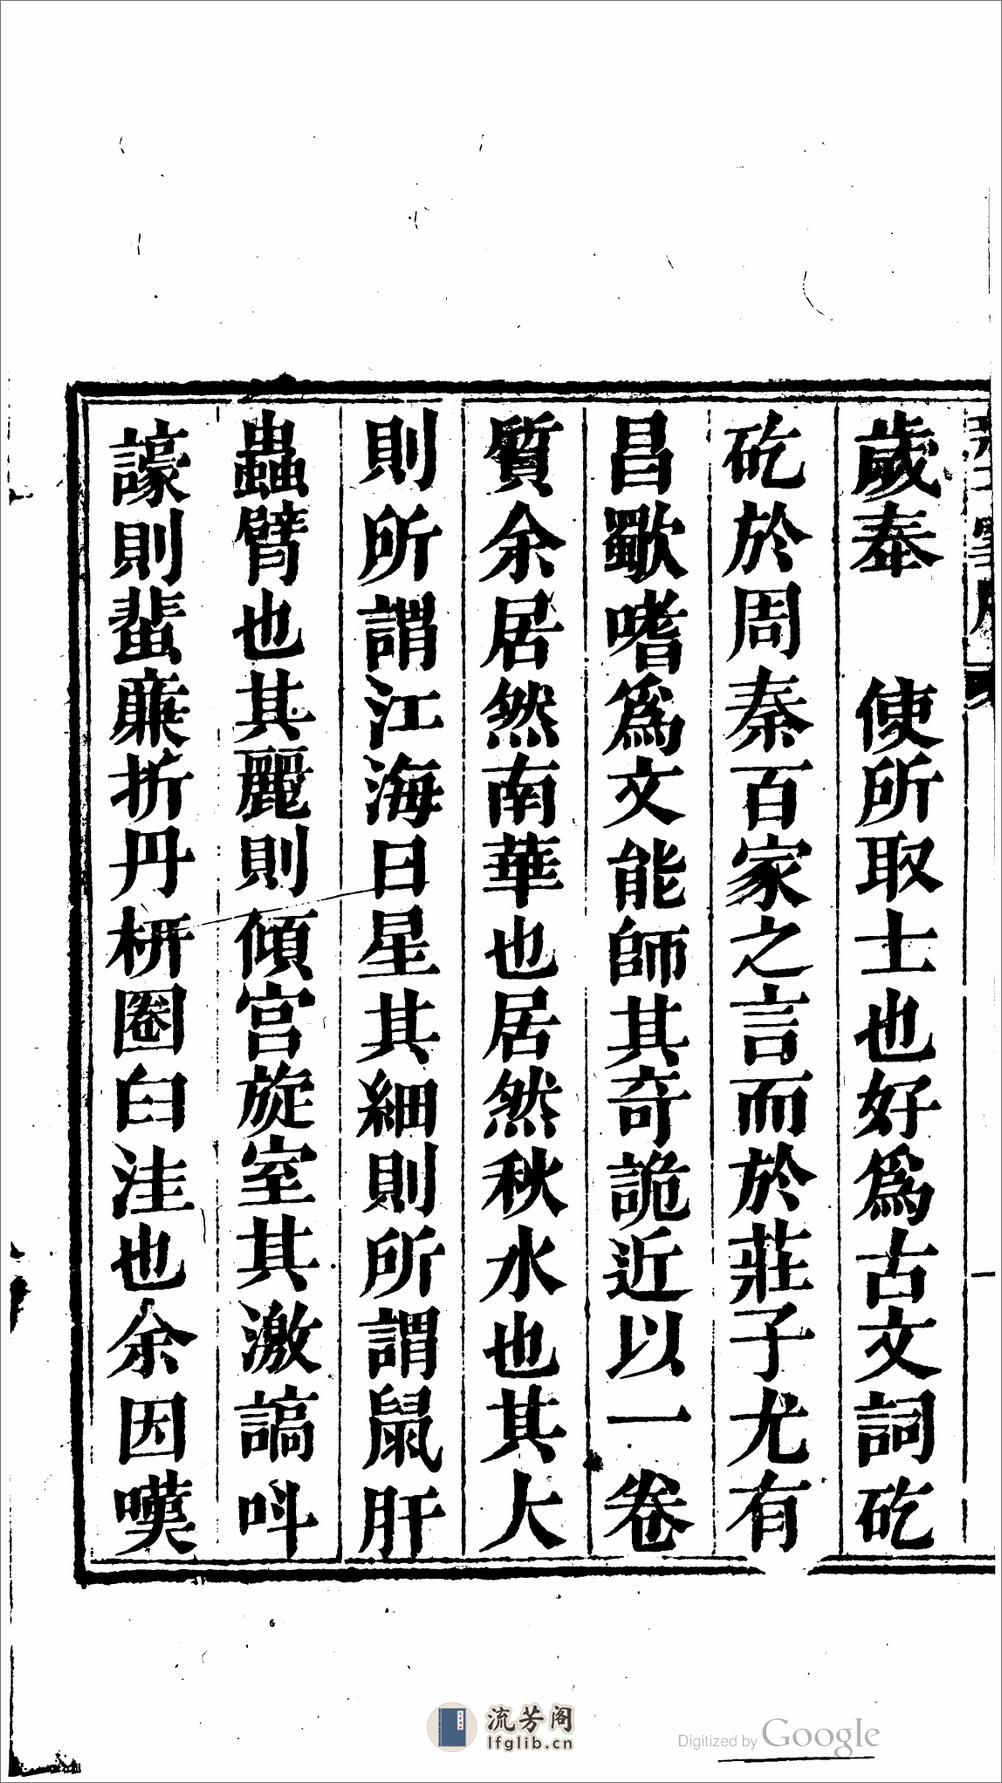 歲奉　使所取士也好爲古文詞矻
矻於周秦百家之言而於莊子尤有
昌歜嗜爲文能師其奇詭近以一卷
質余居然南華也居然秋水也其大
則所謂江海日星其細則所謂鼠肝
蟲臂也其麗則傾宮旋室其激謞叫
譹則蜚廉折丹枅圈臼洼也余因嘆
流芳阁
lfglib.cn
Digitized by Google